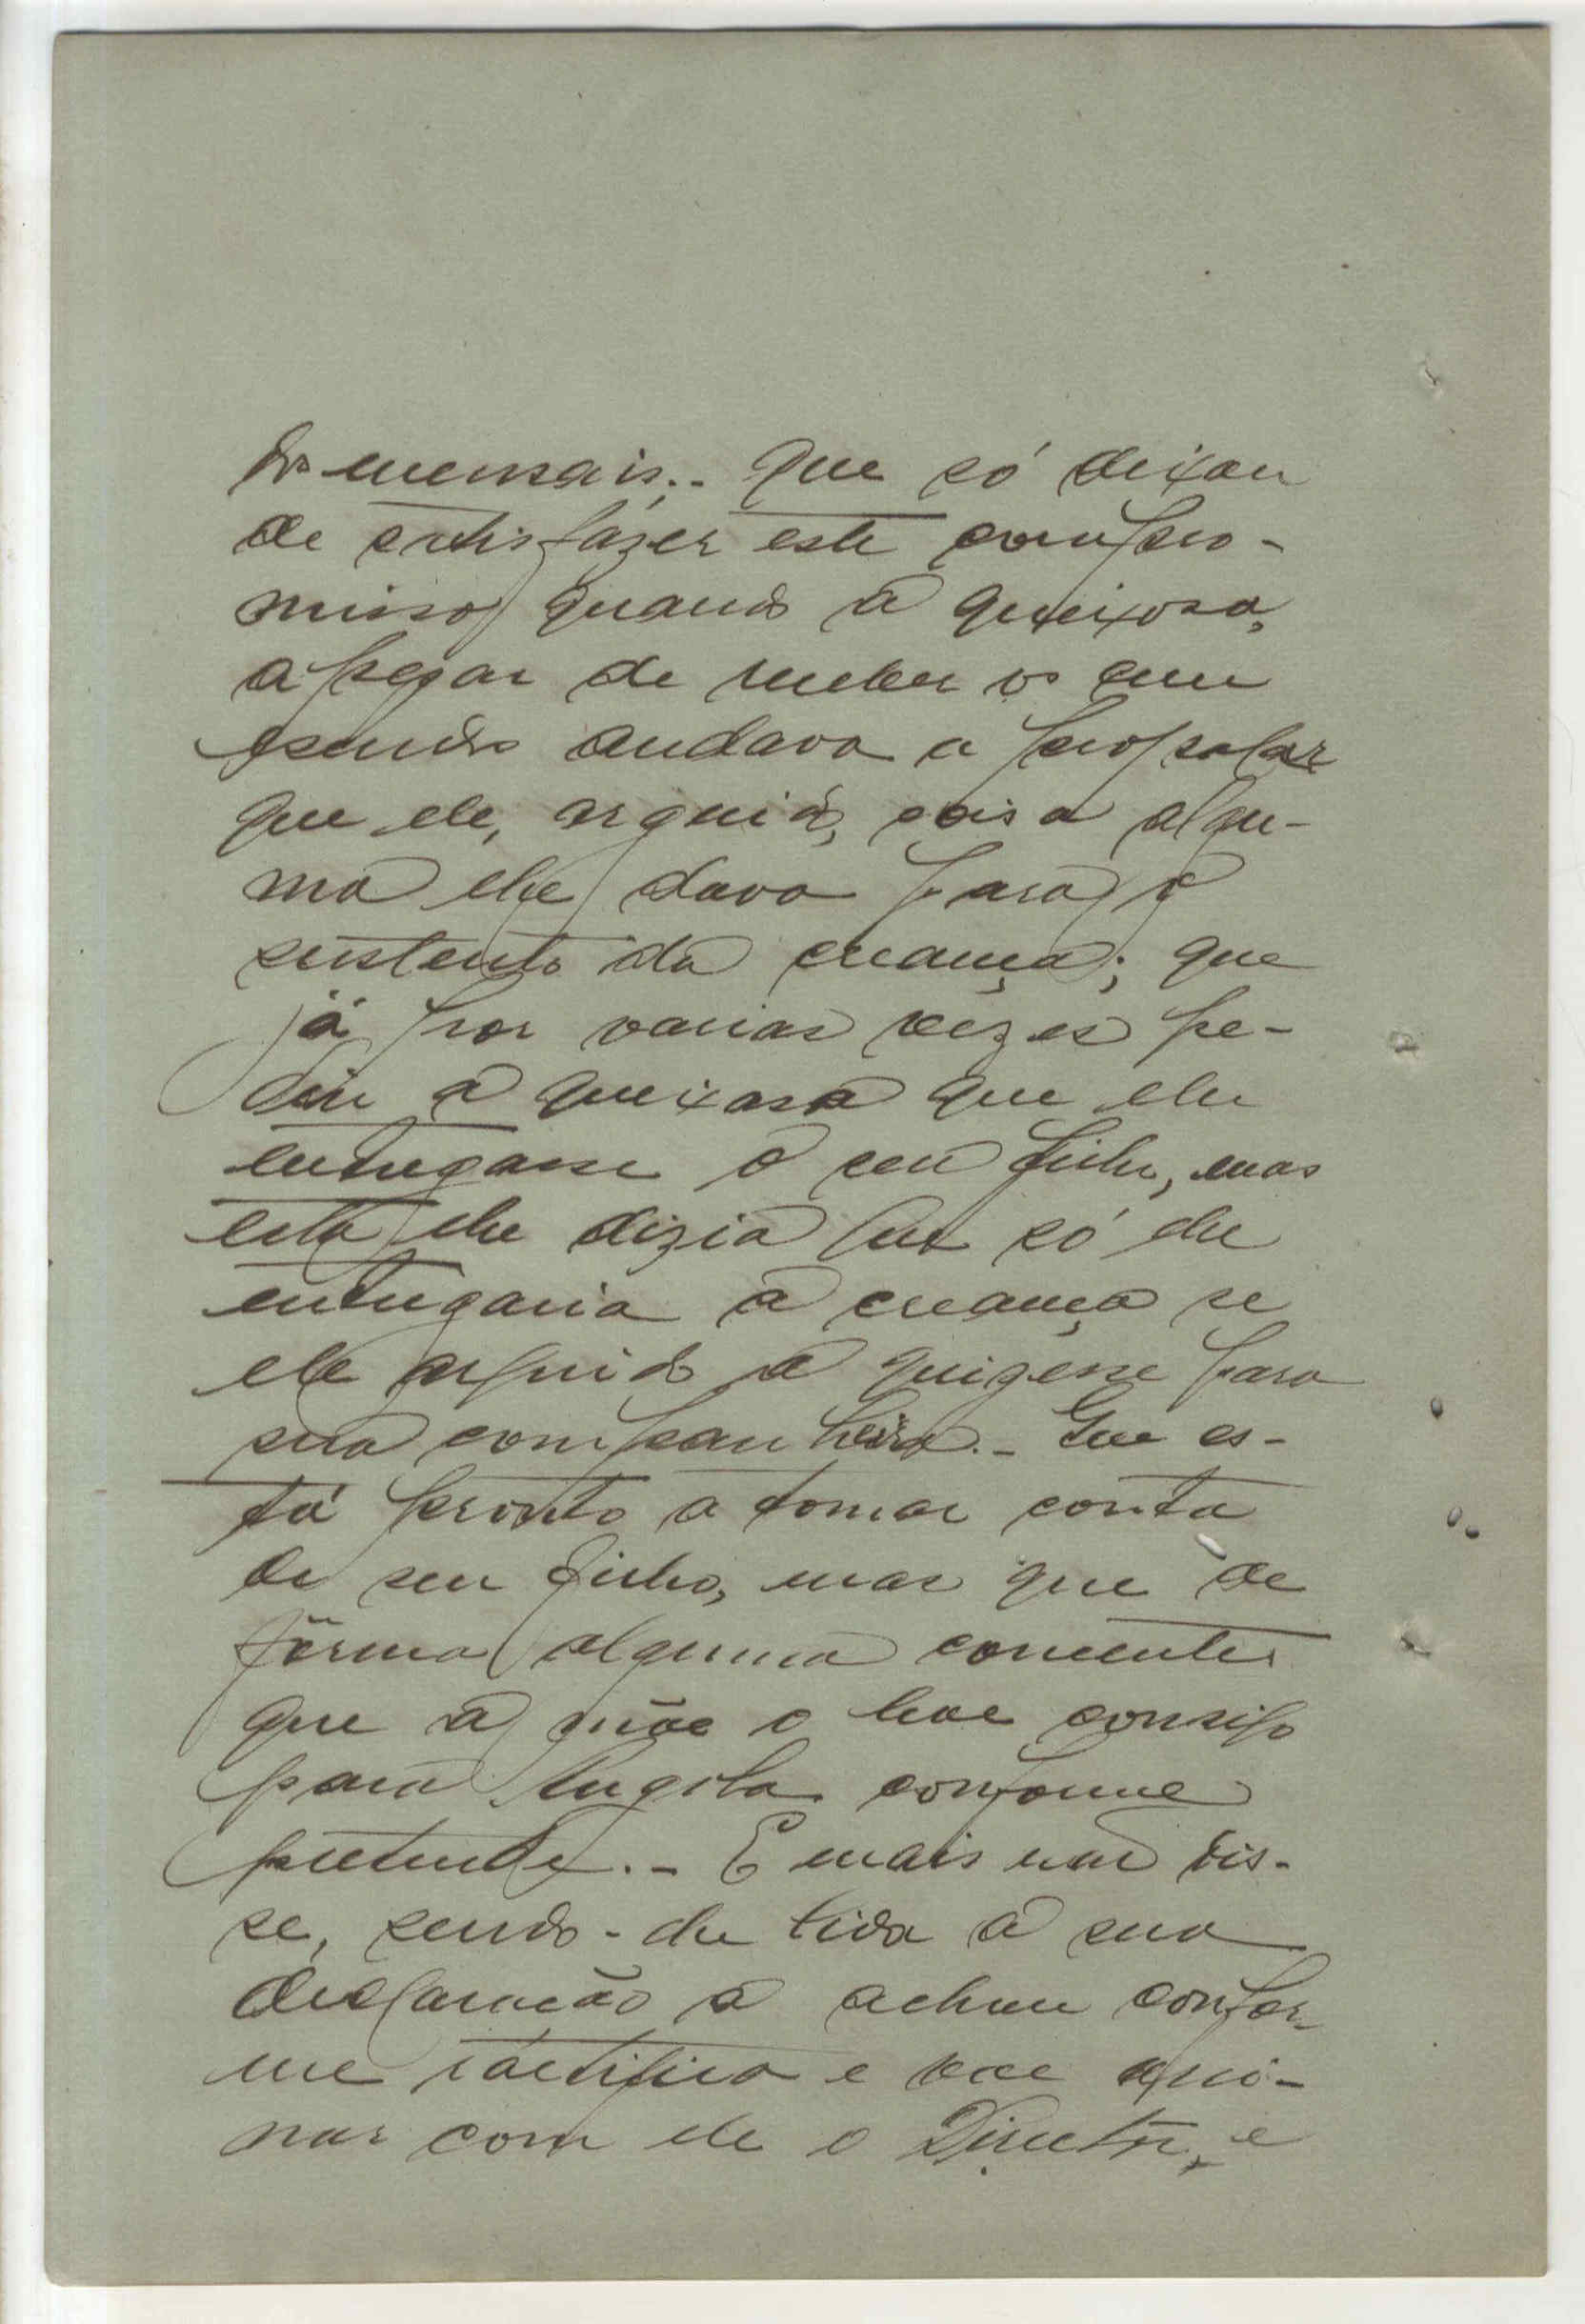 dos mensais.- Que só deixou
de satisfazer este compro-
misso quando a queixosa,
apezar de receber os cem
escudos andava a propalar
que ele, arguido, coisa algu-
ma lhe dava para o
sustento da creança; que
já por varias vezes pe-
diu á queixosa que lhe
entregasse o seu filho, mas
esta lhe dizia que só lhe
entregaria a creança se
ele arguido a quizesse para
sua companheira.- Que es-
tá pronto a tomar conta
do seu filho, mas que de
fórma alguma consente
que a mãe o leve consigo
para Angola conforme
pretende.- E mais não dis-
se, sendo-lhe lida a sua
declaração a achou confor-
me ractifica e vae assi-
nar com ele o Director, e